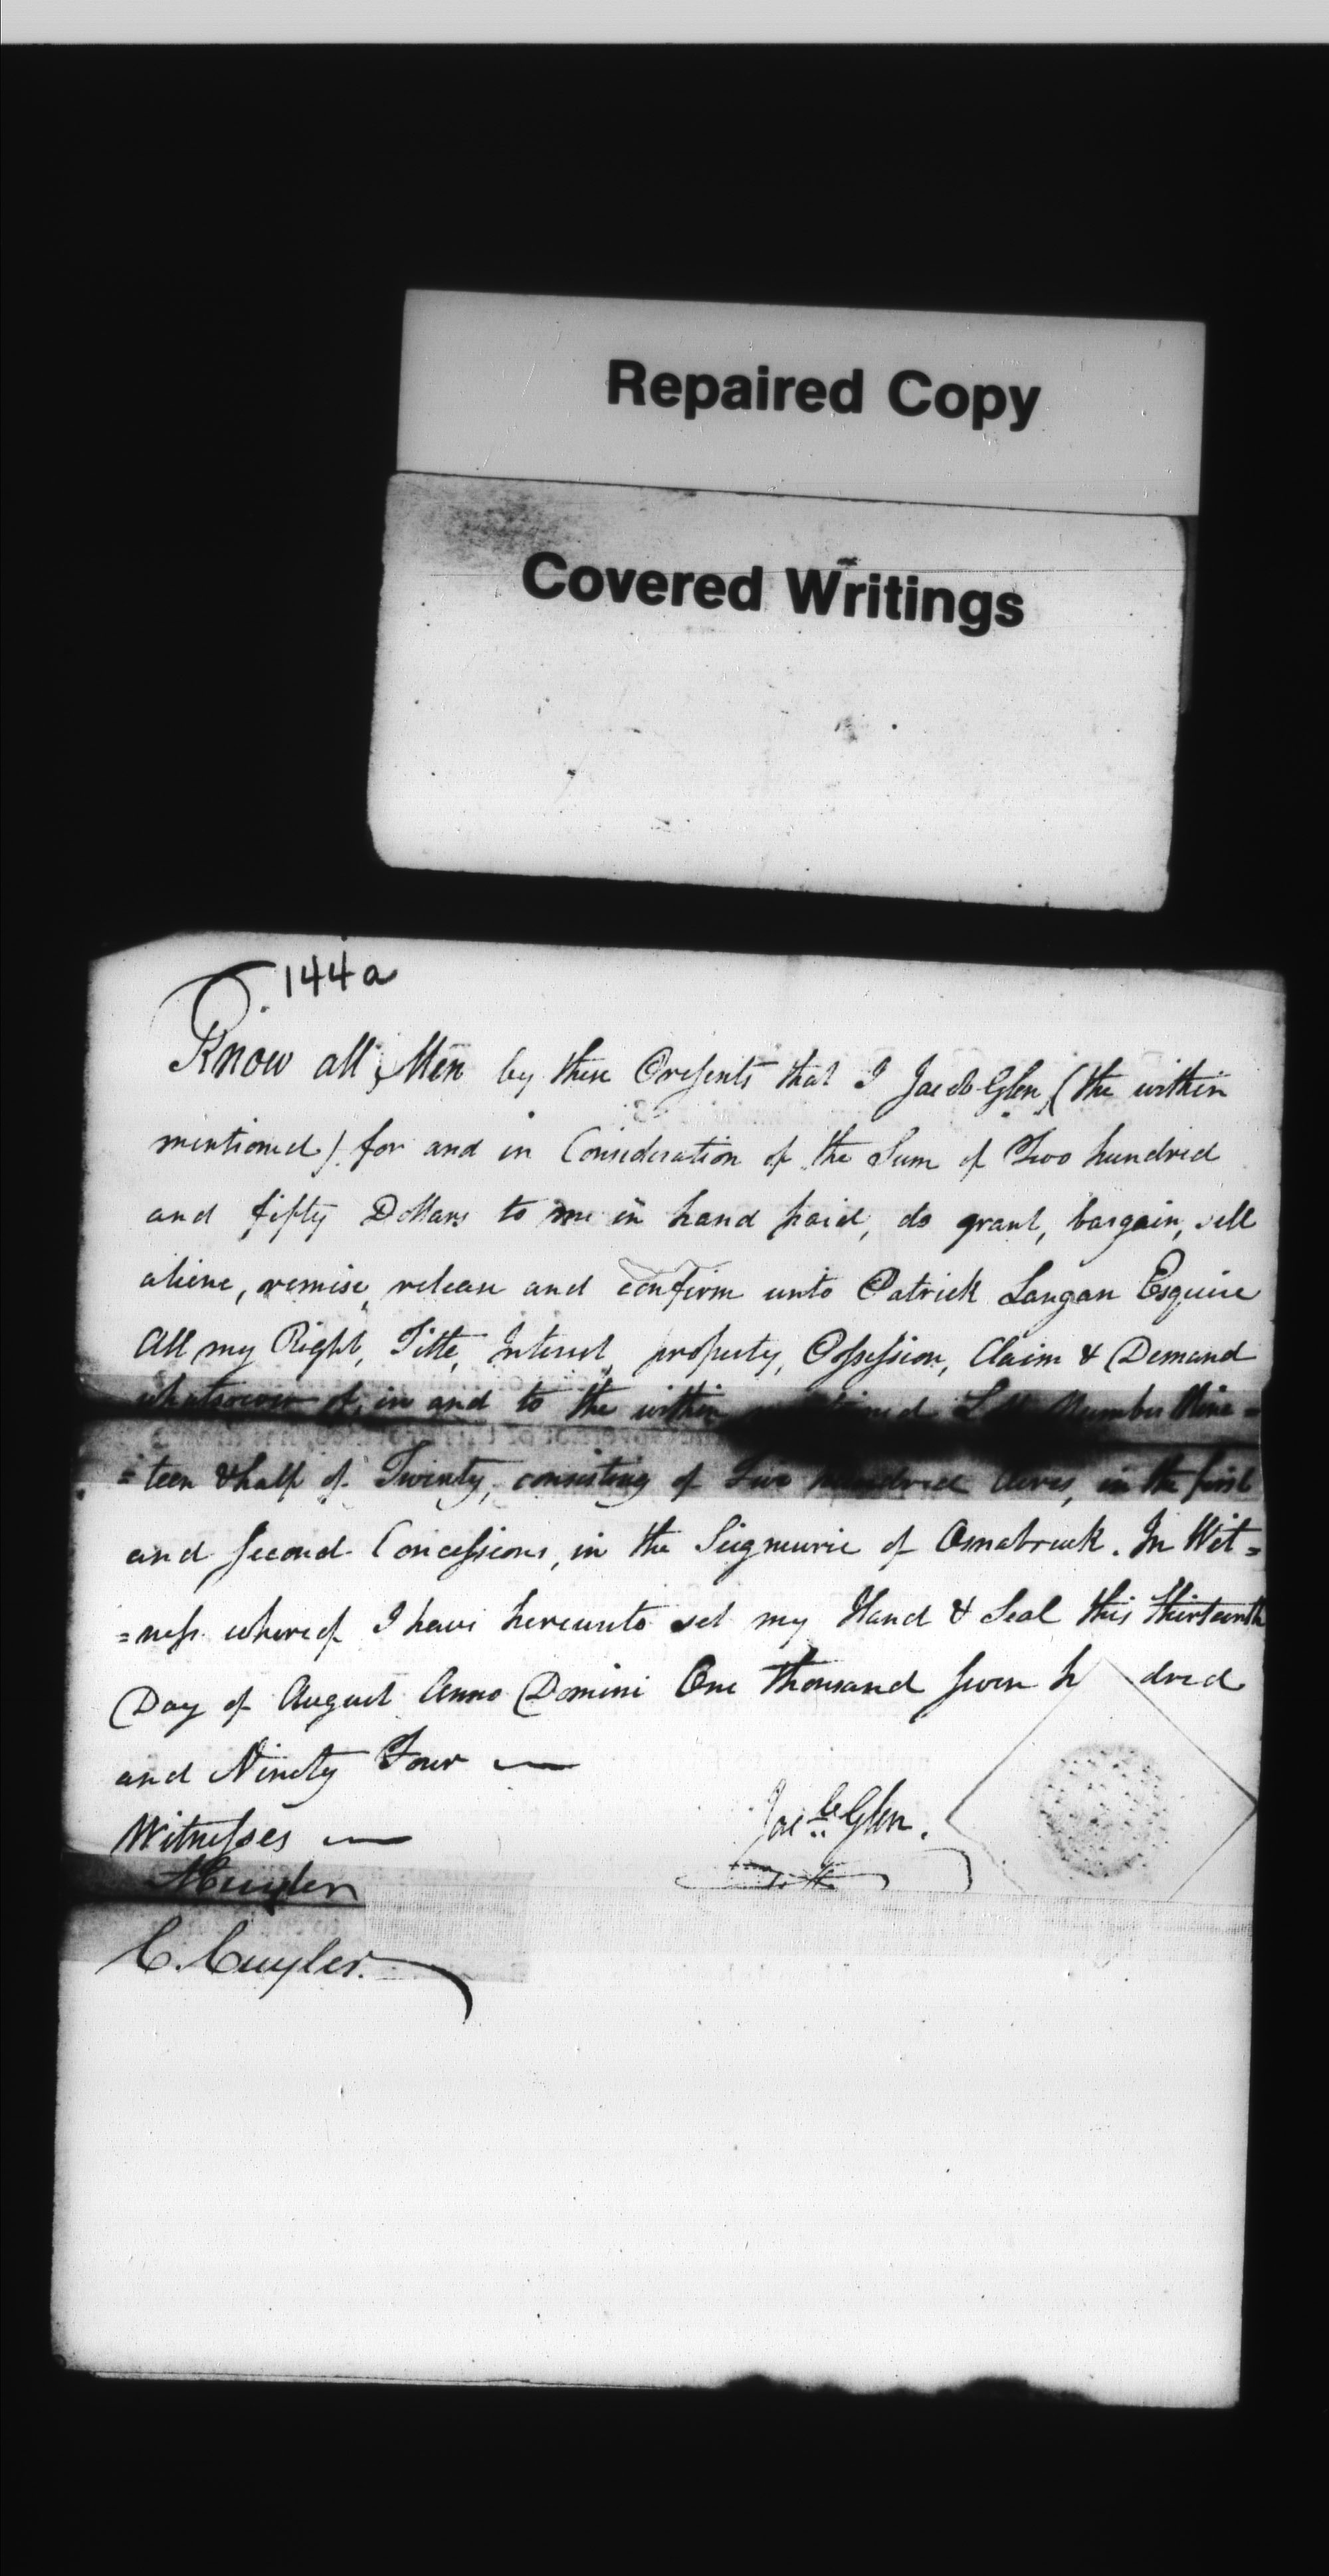 Repaired Copy
Covered Writings
144a
Know all Men by these Presents that I Jacob Glen (the within
mentioned) for and in Consideration of the Sum of Two hundred
and fifty Dollars to me in hand paid, do grant, bargain, sell
aliene, remise, release and confirm unto Patrick Langan Esquire
All my Right, Title, Interest, property, Possession, Claim & Demand
whatsoever of, in and to the within mentioned Lott Number Nine =
= teen & half of Twenty, consisting of Two hundred Acres, in the first
and Second Concessions, in the Seigneurie of Osnabruck. In Wit =
= ness whereof I have hereunto set my Hand & Seal this thirteenth
Day of August Anno Domini One thousand seven h dred
and Ninety Four —
Witnesses —
Jac.b Glen.
C. Cuyler.